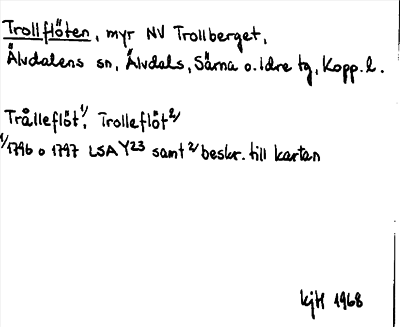 Trollflöten, myr NV Trollberget,
Älvdalens sn, Älvdals, Särna o. Idre tg, Kopp. l.
Trålleflöt 1/, Trolleflöt 2/
1/ 1796 o 1797 LSA Y23 samt 2/ beskr. till kartan
KjH 1968